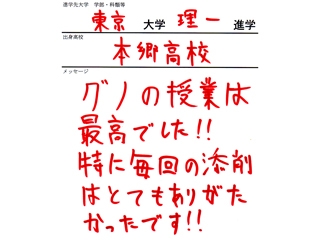 進学先大学 学部・科類等
東京 大学 理一 進学
出身高校
本郷高校
メッセージ
グノの授業は
最高でした!!
特に毎回の添削
はとてもありがた
かったです!!